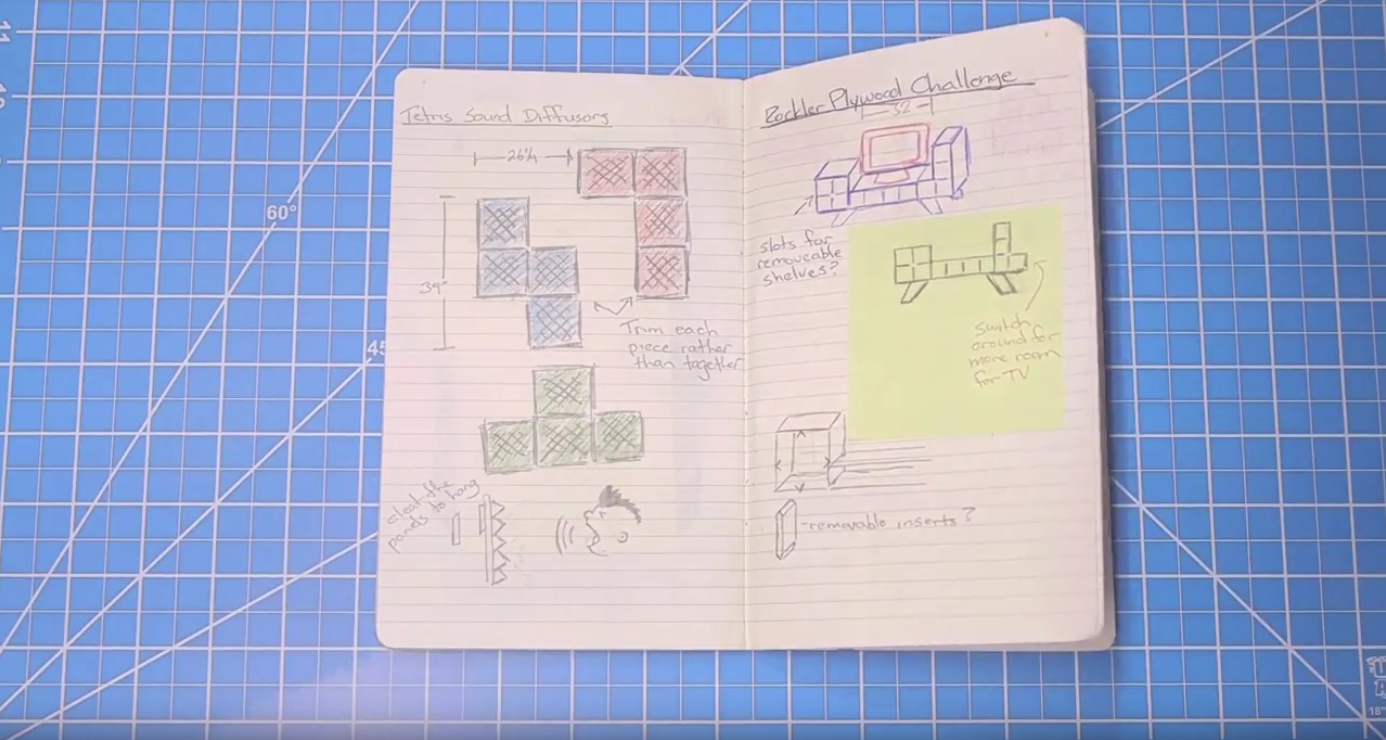 Tetris Sound Diffusors
26¼
39"
Trim each
piece rather
than together
cleat the
to hang
Rockler Plywood Challenge
32
slots for
removeable
shelves?
switch
around for
more room
for TV
-removable inserts?
60°
45
11
18"